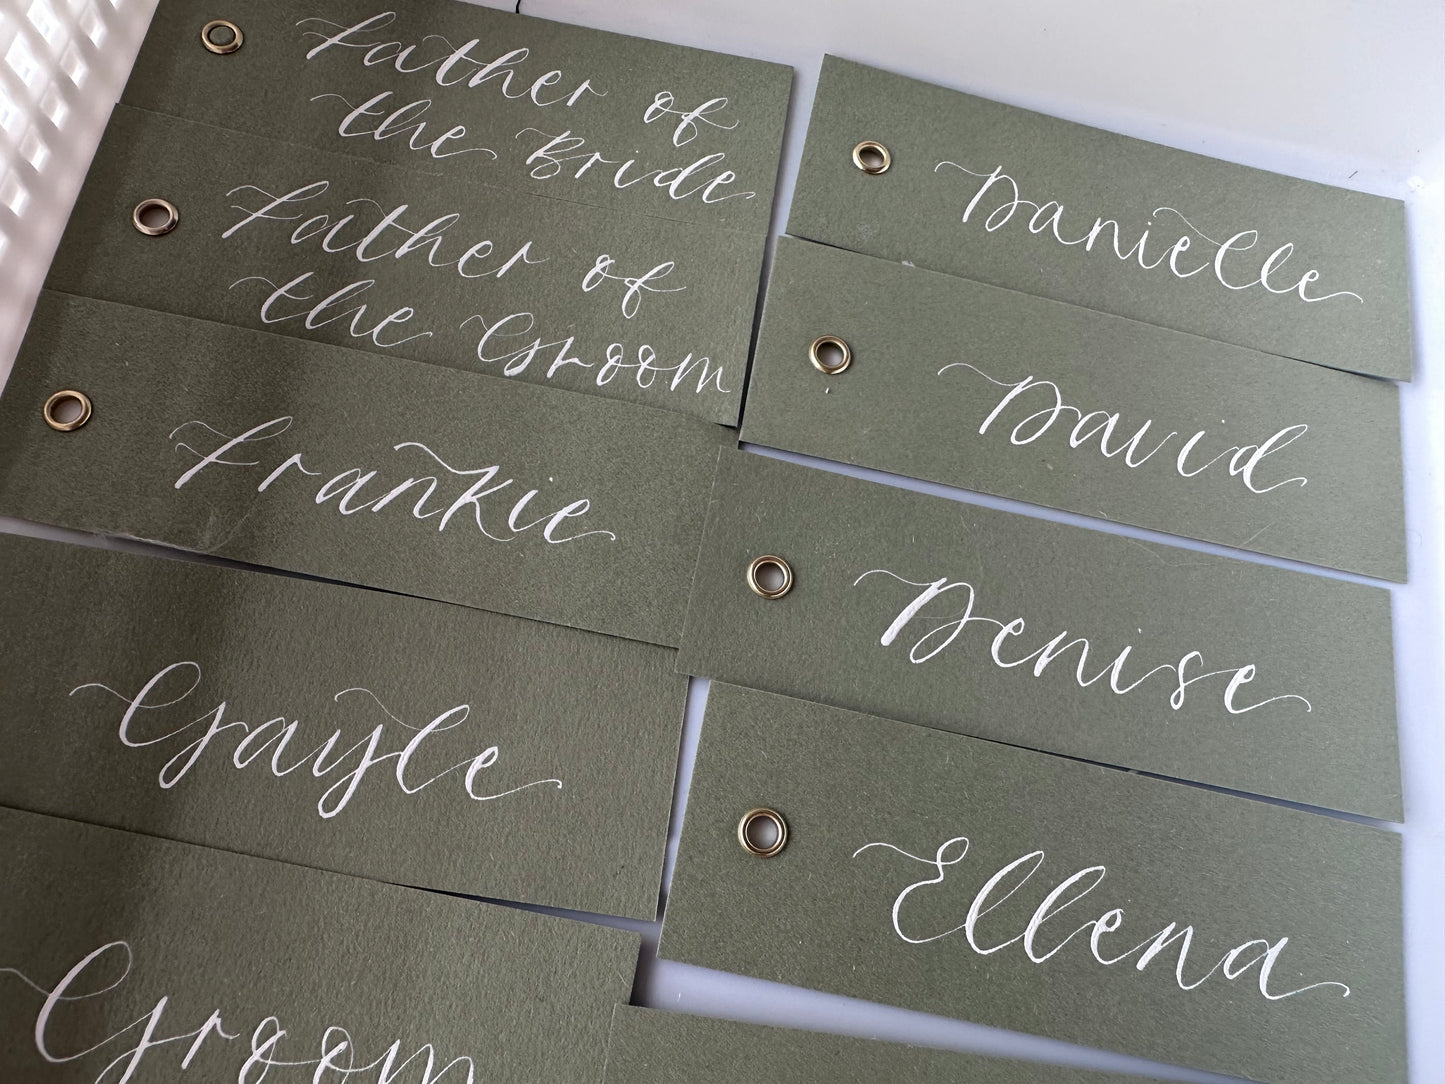 Father of
the Bride
Father of
the Groom
Frankie
Gayle
Groom
Danielle
David
Denise
Ellena